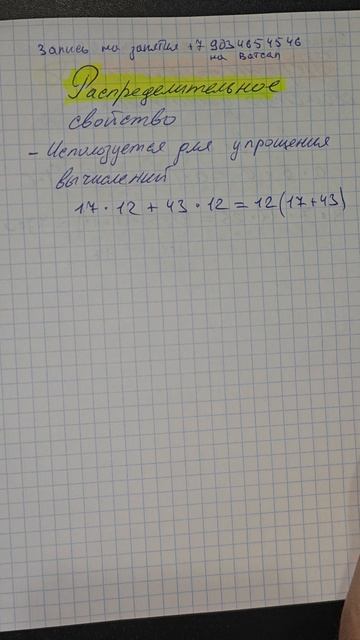 Запись на занятия +7 9034654546
на Ватсап
Распределительное
свойство
- Используется для упрощения
вычислений
17 · 12 + 43 · 12 = 12(17+43)